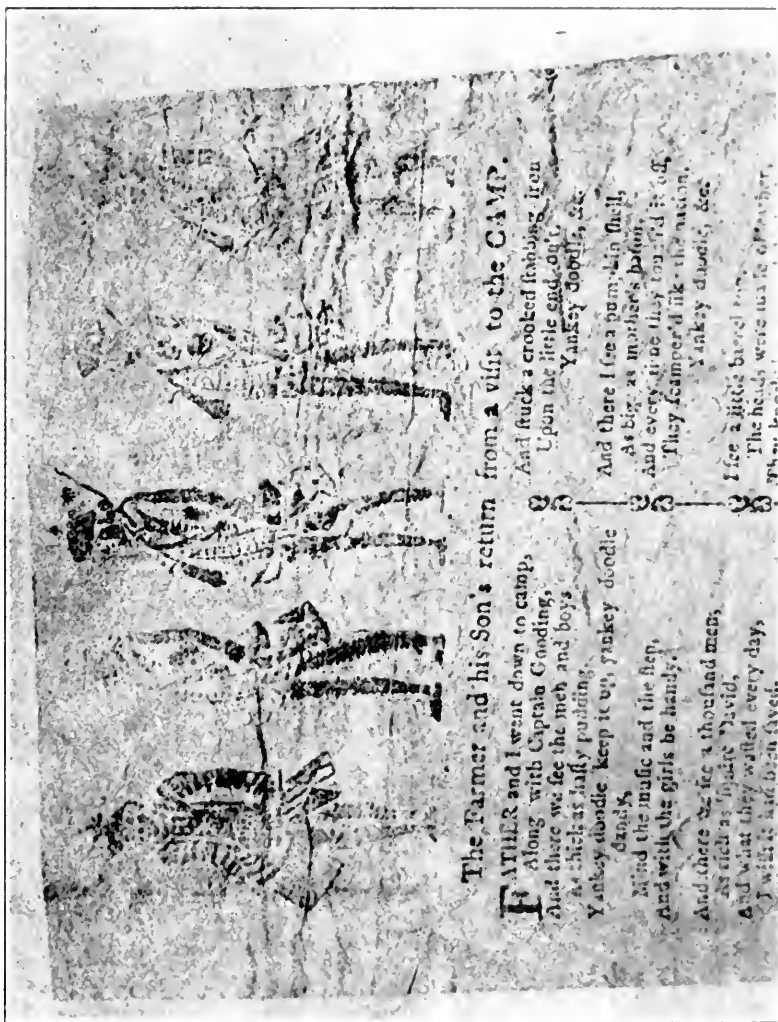 The Farmer and his Son's return from a visit to the CAMP.
FATHER and I went down to camp,
Along with Captain Gooding,
And there we see the men and boys
As thick as hasty pudding.
Yankey doodle keep it up, yankey doodle
dandy,
Mind the music and the step,
And with the girls be handy.
And there we see a thousand men,
As rich as 'Squire David,
And what they wasted every day,
I wish it had been saved.
And stuck a crooked stabbing iron
Upon the little end on't,
Yankey doodle, &c.
And there I see a pumpkin shell,
As big as mother's bason,
And every time they touch'd it off,
They scamper'd like the nation.
Yankey doodle, &c.
I see a little barrel too,
The heads were made of leather,